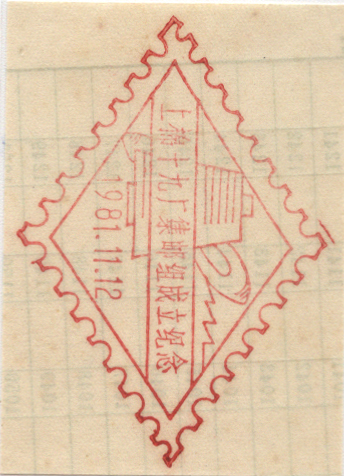 上棉十九厂集邮组成立纪念
1981.11.12